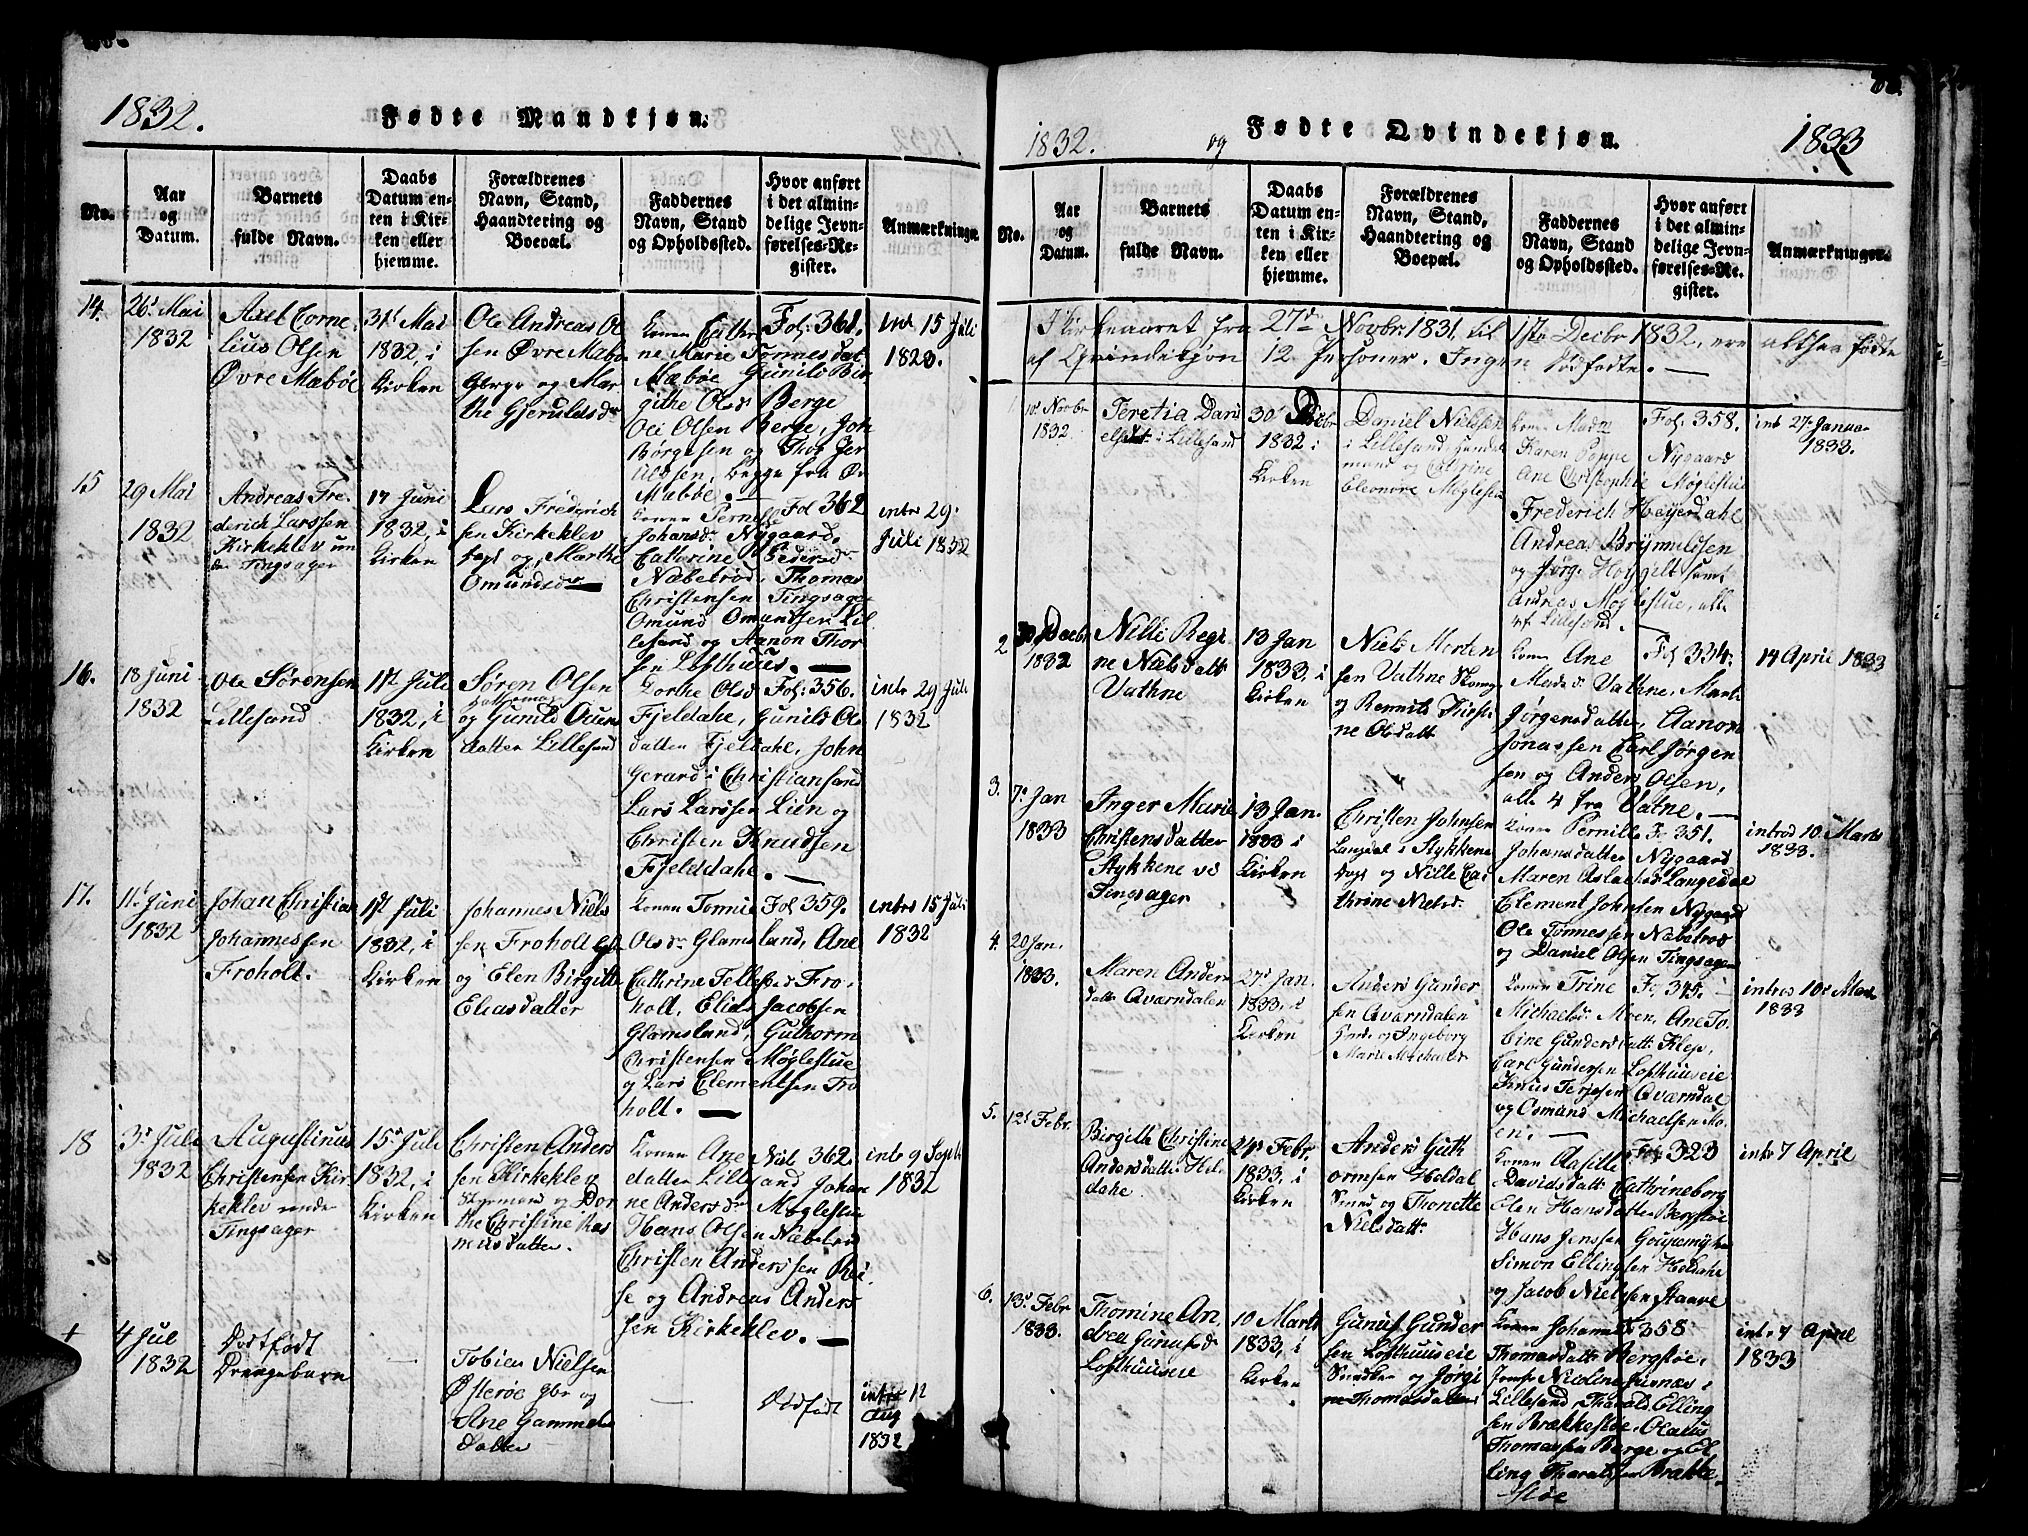 1832.
Fødte Mandkjøn.
No.
Aar
og
Datum.
Barnets
fulde Navn.
Daabs
Datum en-
ten i Kir-
ken eller
hjemme.
Forældrenes
Navn, Stand,
Haandtering og
Boepæl.
Faddernes
Navn, Stand
og Opholdssted.
Hvor anført
i det almin-
delige Jevn-
førelses-Re-
gister.
Anmærkninger.
14.
26d Mai
1832
Axel Corne-
lius Olsen
Øvre Mæbøe
31d Mai
1832, i
Kirken
Ole Andreas Ol
sen Øvre Mæbøe
og Mar
the Gjeruldsdr
Konen Cathr
ne Marie Tønnesdat
Mæbøe Gunild Bir
githe Olsd Berge
Ole Olsen Berge, Joh
Børgesen og Thor Jer
uldsen, begge fra Øv
Mæbøe.
Fol: 361.
Int 15 Juli
1823.
15
29 Mai
1832
Andreas Fre-
derich Larssen
Kirkeklev un
der Tingsager
17 Juni
1832, i
Kirken
Lars Frederich
sen Kirkeklev
og Marthe
Omundsdr
Konen Pernille
Johansdr Nygaard,
Cathrine Pedersdr
Næbelrød, Thomas
Christensen Tingsager
Omund Omundsen Lil
lesand og Aanon Thor
sen Lofthuus.
Fol 362
intr 29.
Juli 1832
16.
18 Juni
1832
Ole Sørensen
Lillesand.
1st Juli
1832, i
Kirken
Søren Olsen
og Gunild Ocum
datter Lillesand
Dorthe Olsd
Fjeldahe, Gunild Ols
datter Fjeldahe, John
Gerard i Christiansand
Lars Larssen Lien og
Christen Knudsen
Fjelddahe.
Fol: 356.
intr 29 Juli
1832
17.
11d Juni
1832
Johan Christian
Johannessen
Froholt.
1st Juli
1832, i
Kirken
Johannes Niels
sen Froholt
og Elen Birgitte
Eliasdatter
Konen Tønnie
Olsdr Glamsland, Ane
Cathrine Tellefsd Fro-
holt, Elias Jacobsen
Glamsland, Guthorm
Christensen Møglestue
og Lars Clementsen Fro
holt.
Fol 359.
intro 15 Juli
1832
18
3d Juli
1832
Augustinus
Christensen Kir-
keklev under
Tingsager
15d Juli
1832, i
Kirken
Christen Anders
sen Kirkeklev
Styrmand og Dor
the Christine Ras
musdatter.
Konen Ane Niels
datter Lillesand Johan
ne Andersdr Møglestue
Hans Olsen Næbelrød
Christen Anderssen Rei
se og Andreas Anders
sen Kirkeklev.
362.
intr 9 Septb
1832
+
4 Jul
1832
Dødfødt
Drengebarn
Tobias Nielsen
Østerøe gbr og
Ane Gammels
datter
Dødfødt
intro 12
Aug
1832
1832.
og
Fødte Qvindekjøn.
1833
No.
Aar
og
Datum.
Barnets
fulde Navn.
Daabs
Datum en-
ten i Kir-
ken eller
hjemme.
Forældrenes
Navn, Stand,
Haandtering og
Boepæl.
Faddernes
Navn, Stand
og Opholdssted.
Hvor anført
i det almin-
delige Jevn-
førelses-Re-
gister.
Anmærkninger.
I Kirkeaaret fra 27de Novbr 1831, til 1ste Decbr 1832, ere altsaa fødte
af Qvindekjøn 12 Personer. Ingen dødfødte.
1
10 Novbr
1832.
Teretia Dani
elsdatt i Lillesand
30d Decbr
1832 i
Kirken
Daniel Nielsen
i Lillesand, Handel
mand og Cathrine
Eleonore Møglestue
Konen Madm
Karen Poppe Nygaard
Ane Christophine Møglestue
Frederich Heyerdahl,
Andreas Brynnildsen
og Jørge Høygilt samt
Andreas Møglestue, alle
af Lillesand.
Fol: 358.
int 27. Januar
1833.
2
Decbr
1832
Nilli Regi
ne Nielsdatt
Vathne
13 Jan
1833, i
Kirken
Niels Morten
sen Vathne
og Rennits Kirsti-
ne Olsdatt
Konen Ane
Madsdr Vathne, Marth
Jørgensdatter, Aanon
Jonassen Carl Jørgen
sen og Anders Olsen,
alle 4 fra Vatne.
Fol 334.
14 April 1833
3.
7d Jan
1833
Inger Marie
Christensdatter
Stykkene vd
Tingsager
13 Jan.
1833 i
Kirken
Christen Johnsen
Langdal i Stykkene
og Nille Cat
thrine Nielsdr
Konen Pernille
Johansdatter Nygaard
Maren Aslachsd Langedal
Clement Johnsen Nygaard
Ole Tønnessen Næbelrød
og Daniel Olsen Tingsager
Fo 351.
introd 10. Marts
1833.
4.
20 Jan.
1833.
Maren Anders
datter Qværndalen
27d Jan.
1833, i
Kirken
Anders Gunder
sen Qværndalen
og Ingeborg
Marie Michaelsdr
Konen Trine
Michaelsdr Moen, Ane To-
bine Gundersdatt Klep,
Carl Gundersen Lofthuuseie
Knud Terjesen Qværndal
og Osmund Michaelsen Mo-
en.
Fo 345.
introd 10d Marts
1833
5.
12d Febr.
Birgitte Christine
Andersdatter Hel-
dahe
24d Febr.
1833, i
Kirken
Anders Guth
ormsen Heldal
Smed og Thonette
Nielsdatt
Konen Aasille
Davidsdatt Cathrineborg
Elen Hansdatter Bergstøe
Hans Jenssen
Simon Ellingsen Heldahe
og Jacob Nielssen Staave
Fol 323
intr 7 April
6.
13d Febr
1833.
Thomine An
drea Gunufsd
Lofthuuseie
10 Marts
1833, i
Kirken
Gunuf Gunder
sen Lofthuuseie
Snedker og Jørgi
ne Thomasdatter
Konen Johanne
Thomasdatt Bergstøe,
Jomfr Nicoline Juenæs i
Lillesand, Tharald Elling
sen Brækkestøe, Olaus
Thomassen Berge og El
ling Tharaldsen Brække-
støe
F 358
intr 7 April
1833